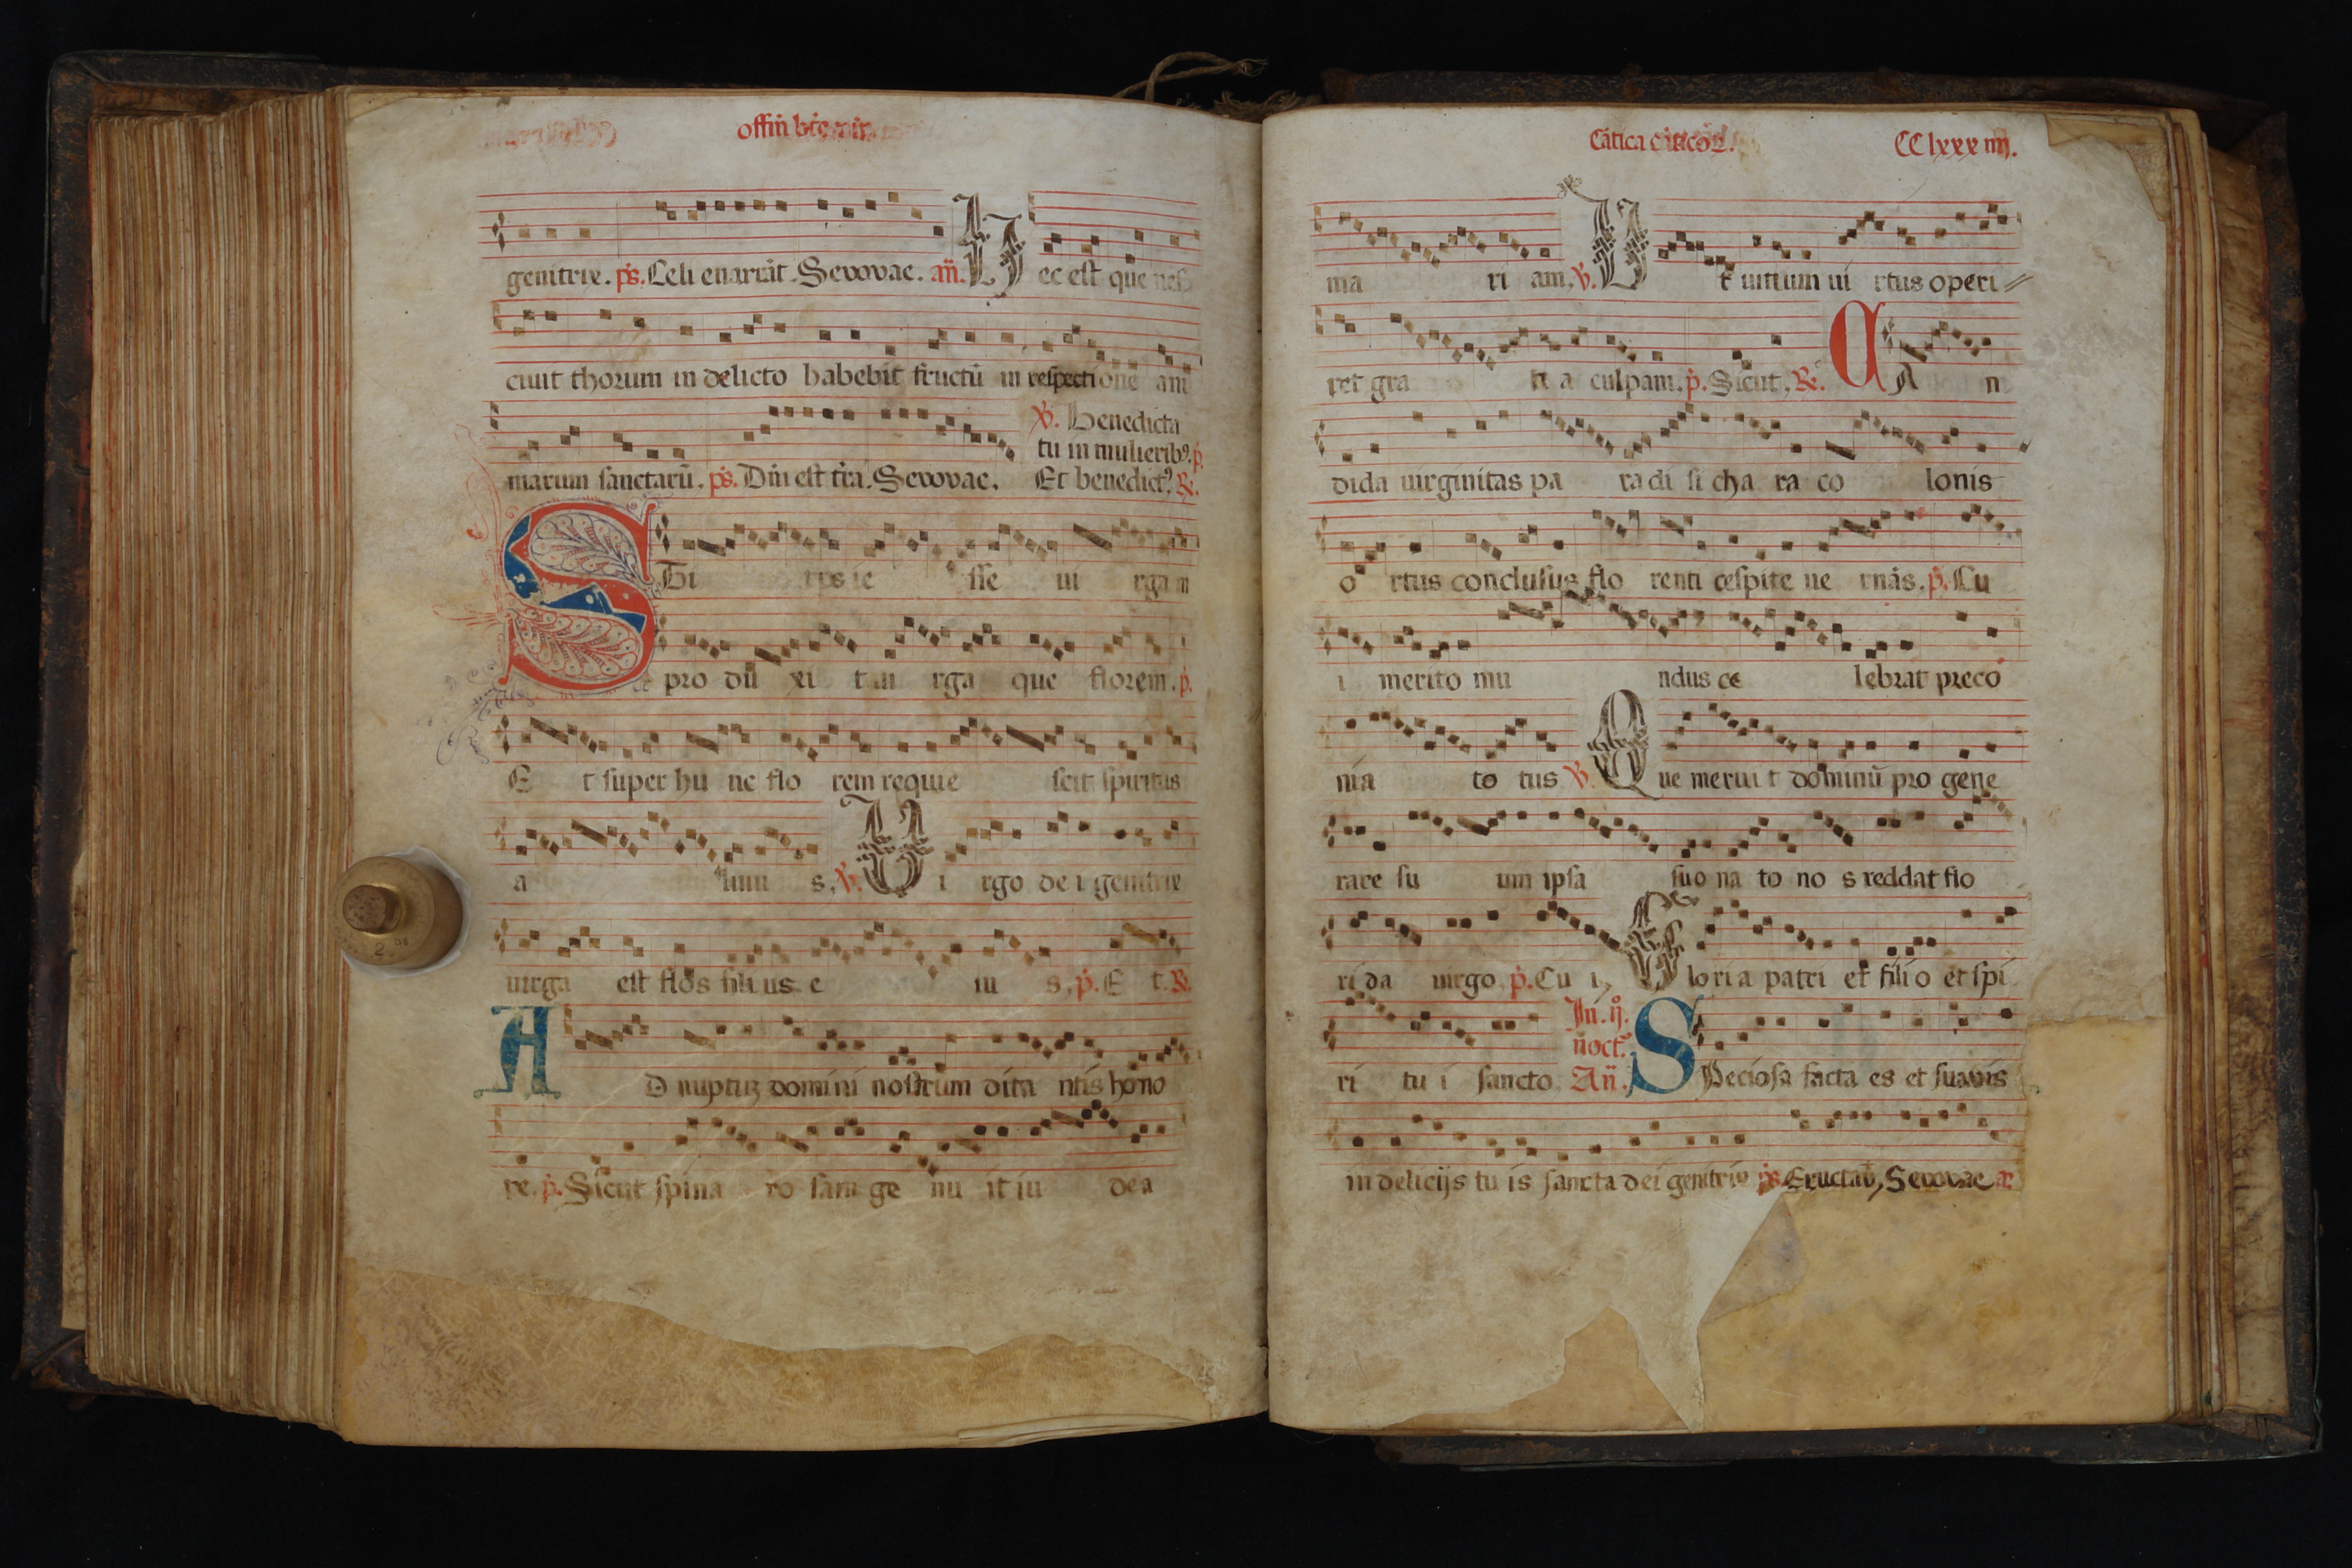 offin̄ btē
genitrix. p̄s. Celi enarrāt. Seuouae. an̄. Hec est que nes
ciuit thorum in delicto habebit fructū in respectione ani
marum sanctarū. p̄s. Dn̄i est t̄ra. Seuouae. ℣. Benedicta
tu in mulieribꝰ. p̄.
Et benedictꝰ. ℟.
STirps iesse uirgam
produxit uirgaque florem. p̄.
Et super hunc florem requiescit spiritus
almus. ℣. Virgo dei genitrix
uirga est flos filius eius. p̄. Et. ℟.
AD nuptuꝫ domini nostrum ditantis hono
re. p̄. Sicut spina rosam genuit iudea
Cātica cāticoꝝ. CClxxxiiij.
mariam. ℣. Ut uitium uirtus operi
ret gratia culpam. p̄. Sicut. ℟. CAn
dida uirginitas paradisi chara colonis
ortus conclusus florenti cespite uernās. p̄. Cu
i merito mundus celebrat preco
nia totus ℣. Que meruit dominū progene
rare suum ipsa suo nato nos reddat flo
rida uirgo. p̄. Cui. Gloria patri et filio et spi
ritui sancto. In. ij. noct̄. An̄. SPeciosa facta es et suauis
in delicijs tuis sancta dei genitrix p̄s. Eructaū, Seuouae a